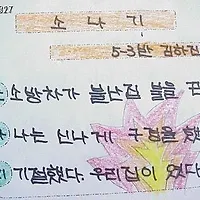 327
소 나 기
5-3반 김하진
소 소방차가 불난집 불을 끈
나 나는 신나게 구경을 했
기 기절했다. 우리집이 였다